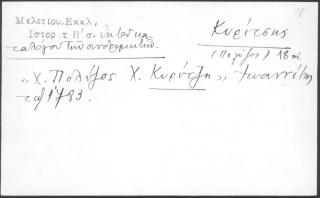 18
Μελετίου. Εκκλ.
Ιστορ. τ. Β' σ.
καταλόγου των συνδρομητών.
Κυρίτσης
(Πολύζος) 18 αι.
«Χ. Πολύζος Χ. Κυρίτζη», Ιωαννίτης
1783.